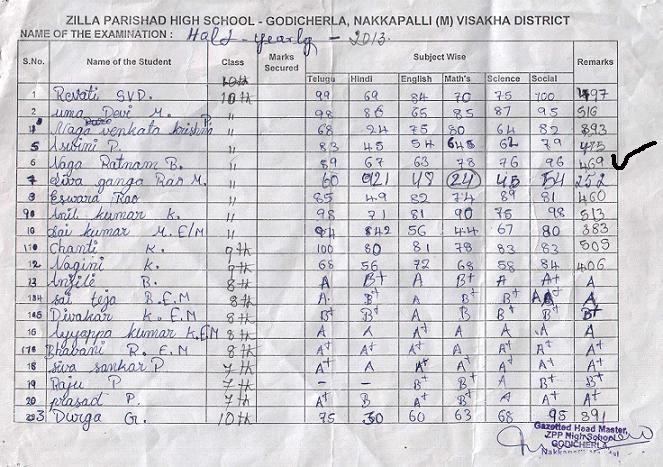 ZILLA PARISHAD HIGH SCHOOL - GODICHERLA, NAKKAPALLI (M) VISAKHA DISTRICT
NAME OF THE EXAMINATION : Half - yearly - 2013.
S.No. Name of the Student Class Marks Secured Subject Wise Remarks
Telugu Hindi English Math's Science Social
10th
1 Revati S.V.D. 10th 99 69 84 70 75 100 497
2 uma Devi M. " 98 86 65 85 87 95 516
Naga venkata krishna P. " 68 24 75 80 64 82 393
5 Asvini P. " 83 45 54 79 475
6 Naga Ratnam B. " 89 67 63 78 76 96 469
7 Siva ganga Rao M. " 60 21 48 24 45 54 252
Eswara Rao " 85 49 82 74 89 81 460
Anil kumar K. " 98 71 81 90 75 98 513
10 Sai kumar M. E/M " 94 42 56 44 67 80 383
Chanti K. 9th 100 80 81 78 83 83 505
12 Nagini K. 9th 68 56 72 68 58 84 406
B. 8th A B+ A A A+ A
sai teja B.E.M 8th A B+ A B+ B+ A A
Divakar K. E.M 8th B+ B+ A B+ B+ B+
Ayyappa kumar K.E.M 8th A A A+ A A A A
Bhavani R. E.M 8th A+ A+ A A+ A+ A+ A+
18 Siva sankar P 7th A+ A A+ A+ A A+ A+
19 Raju P 7th - - B+ B+ A B+ B+
20 prasad P. 7th A B A A+ A A+ A+
Durga G. 10th 75 30 60 63 68 95 391
Gazetted Head Master,
ZPP High School
GODICHERLA,
Nakkapalli Mandal